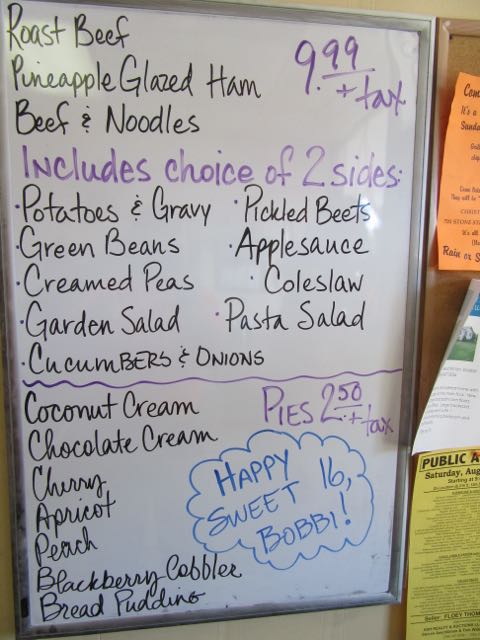 Roast Beef
Pineapple Glazed Ham
Beef & Noodles
9.99 + tax
Includes choice of 2 sides:
· Potatoes & Gravy
· Green Beans
· Creamed Peas
· Garden Salad
· Cucumbers & Onions
· Pickled Beets
· Applesauce
· Coleslaw
· Pasta Salad
Pies 2.50 + tax
Coconut Cream
Chocolate Cream
Cherry
Apricot
Peach
Blackberry Cobbler
Bread Pudding
HAPPY
SWEET 16,
BOBBI!
It's a
Sunda
Rain or S
PUBLIC A
Saturday, Aug
Starting at